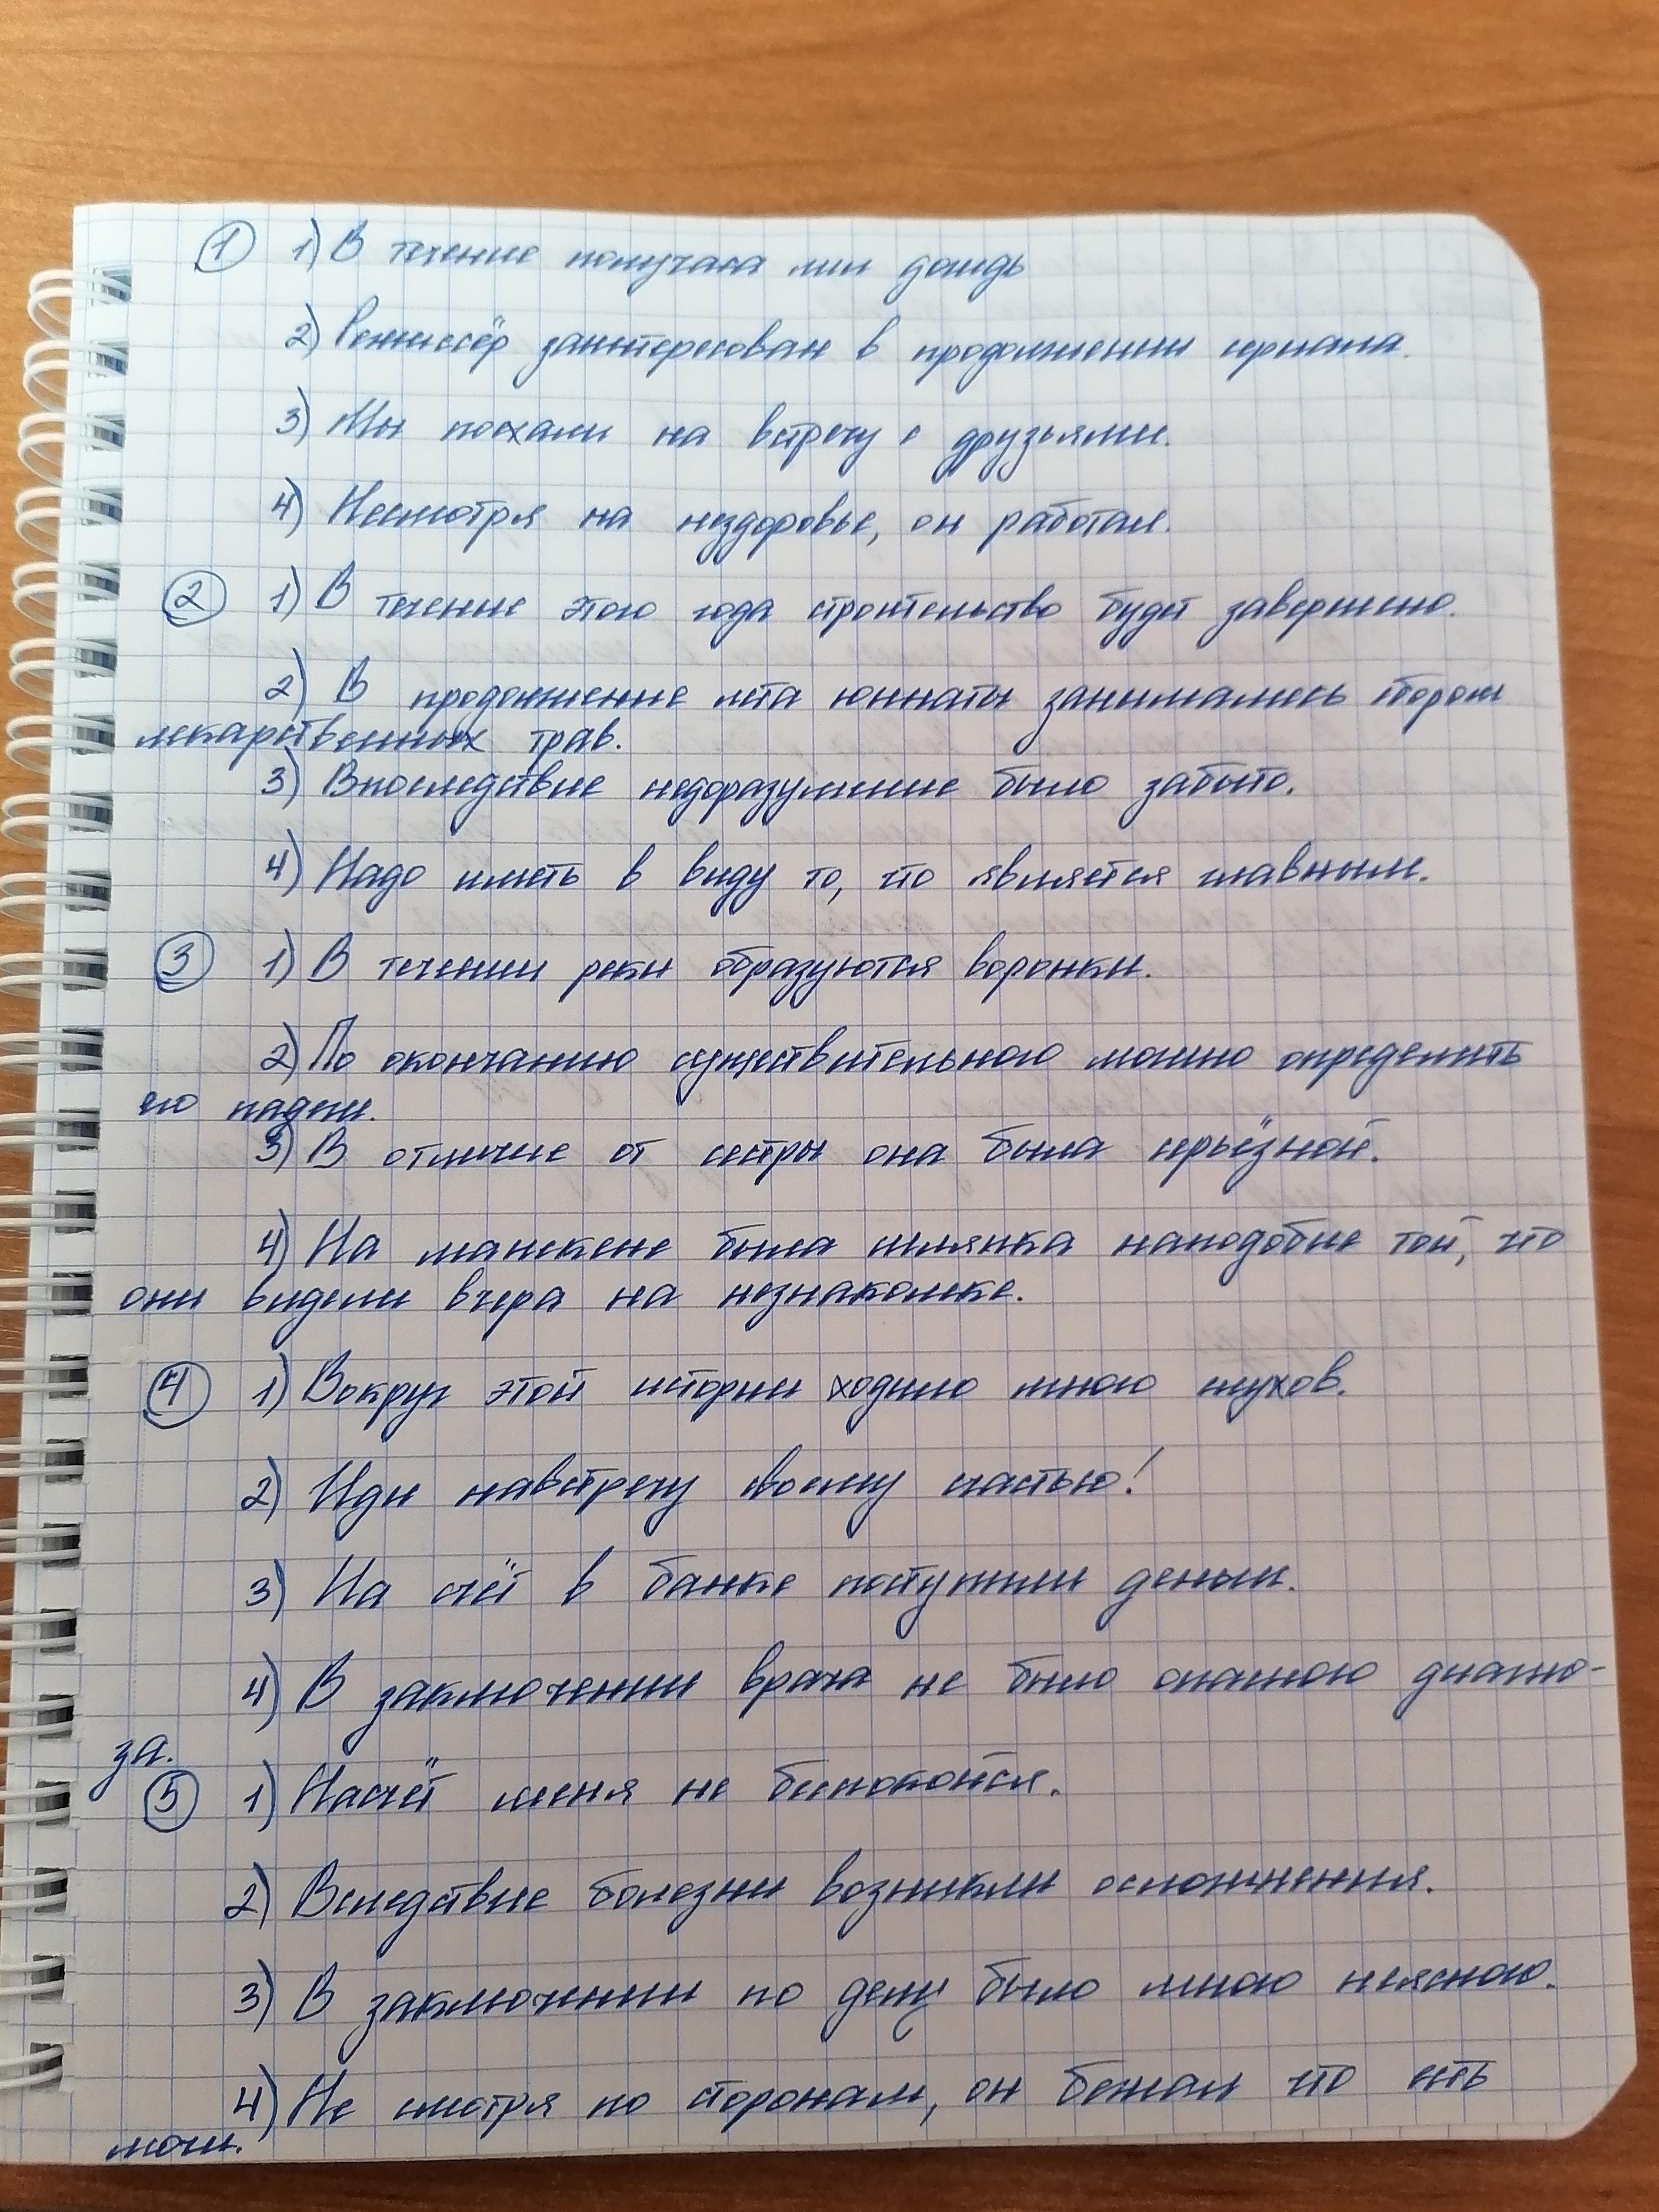 1 1) В течение получаса лил дождь
2) Режиссёр заинтересован в продолжении сериала.
3) Мы поехали на встречу с друзьями.
4) Несмотря на нездоровье, он работал.
2 1) В течение этого года строительство будет завершено.
2) В продолжение лета юннаты занимались сбором
лекарственных трав.
3) Впоследствие недоразумение было забыто.
4) Надо иметь в виду то, что является главным.
3 1) В течении реки образуются воронки.
2) По окончанию существительного можно определить
его падеж.
3) В отличие от сестры она была серьёзной.
4) На манекене была шляпка наподобие той, что
они видели вчера на незнакомке.
4 1) Вокруг этой истории ходило много слухов.
2) Иди навстречу своему счастью!
3) На счёт в банке поступили деньги.
4) В заключении врача не было опасного диагно-
за.
5 1) Насчёт меня не беспокойся.
2) Вследствие болезни возникли осложнения.
3) В заключении по делу было много неясного.
4) Не смотря по сторонам, он бежал что есть
мочи.